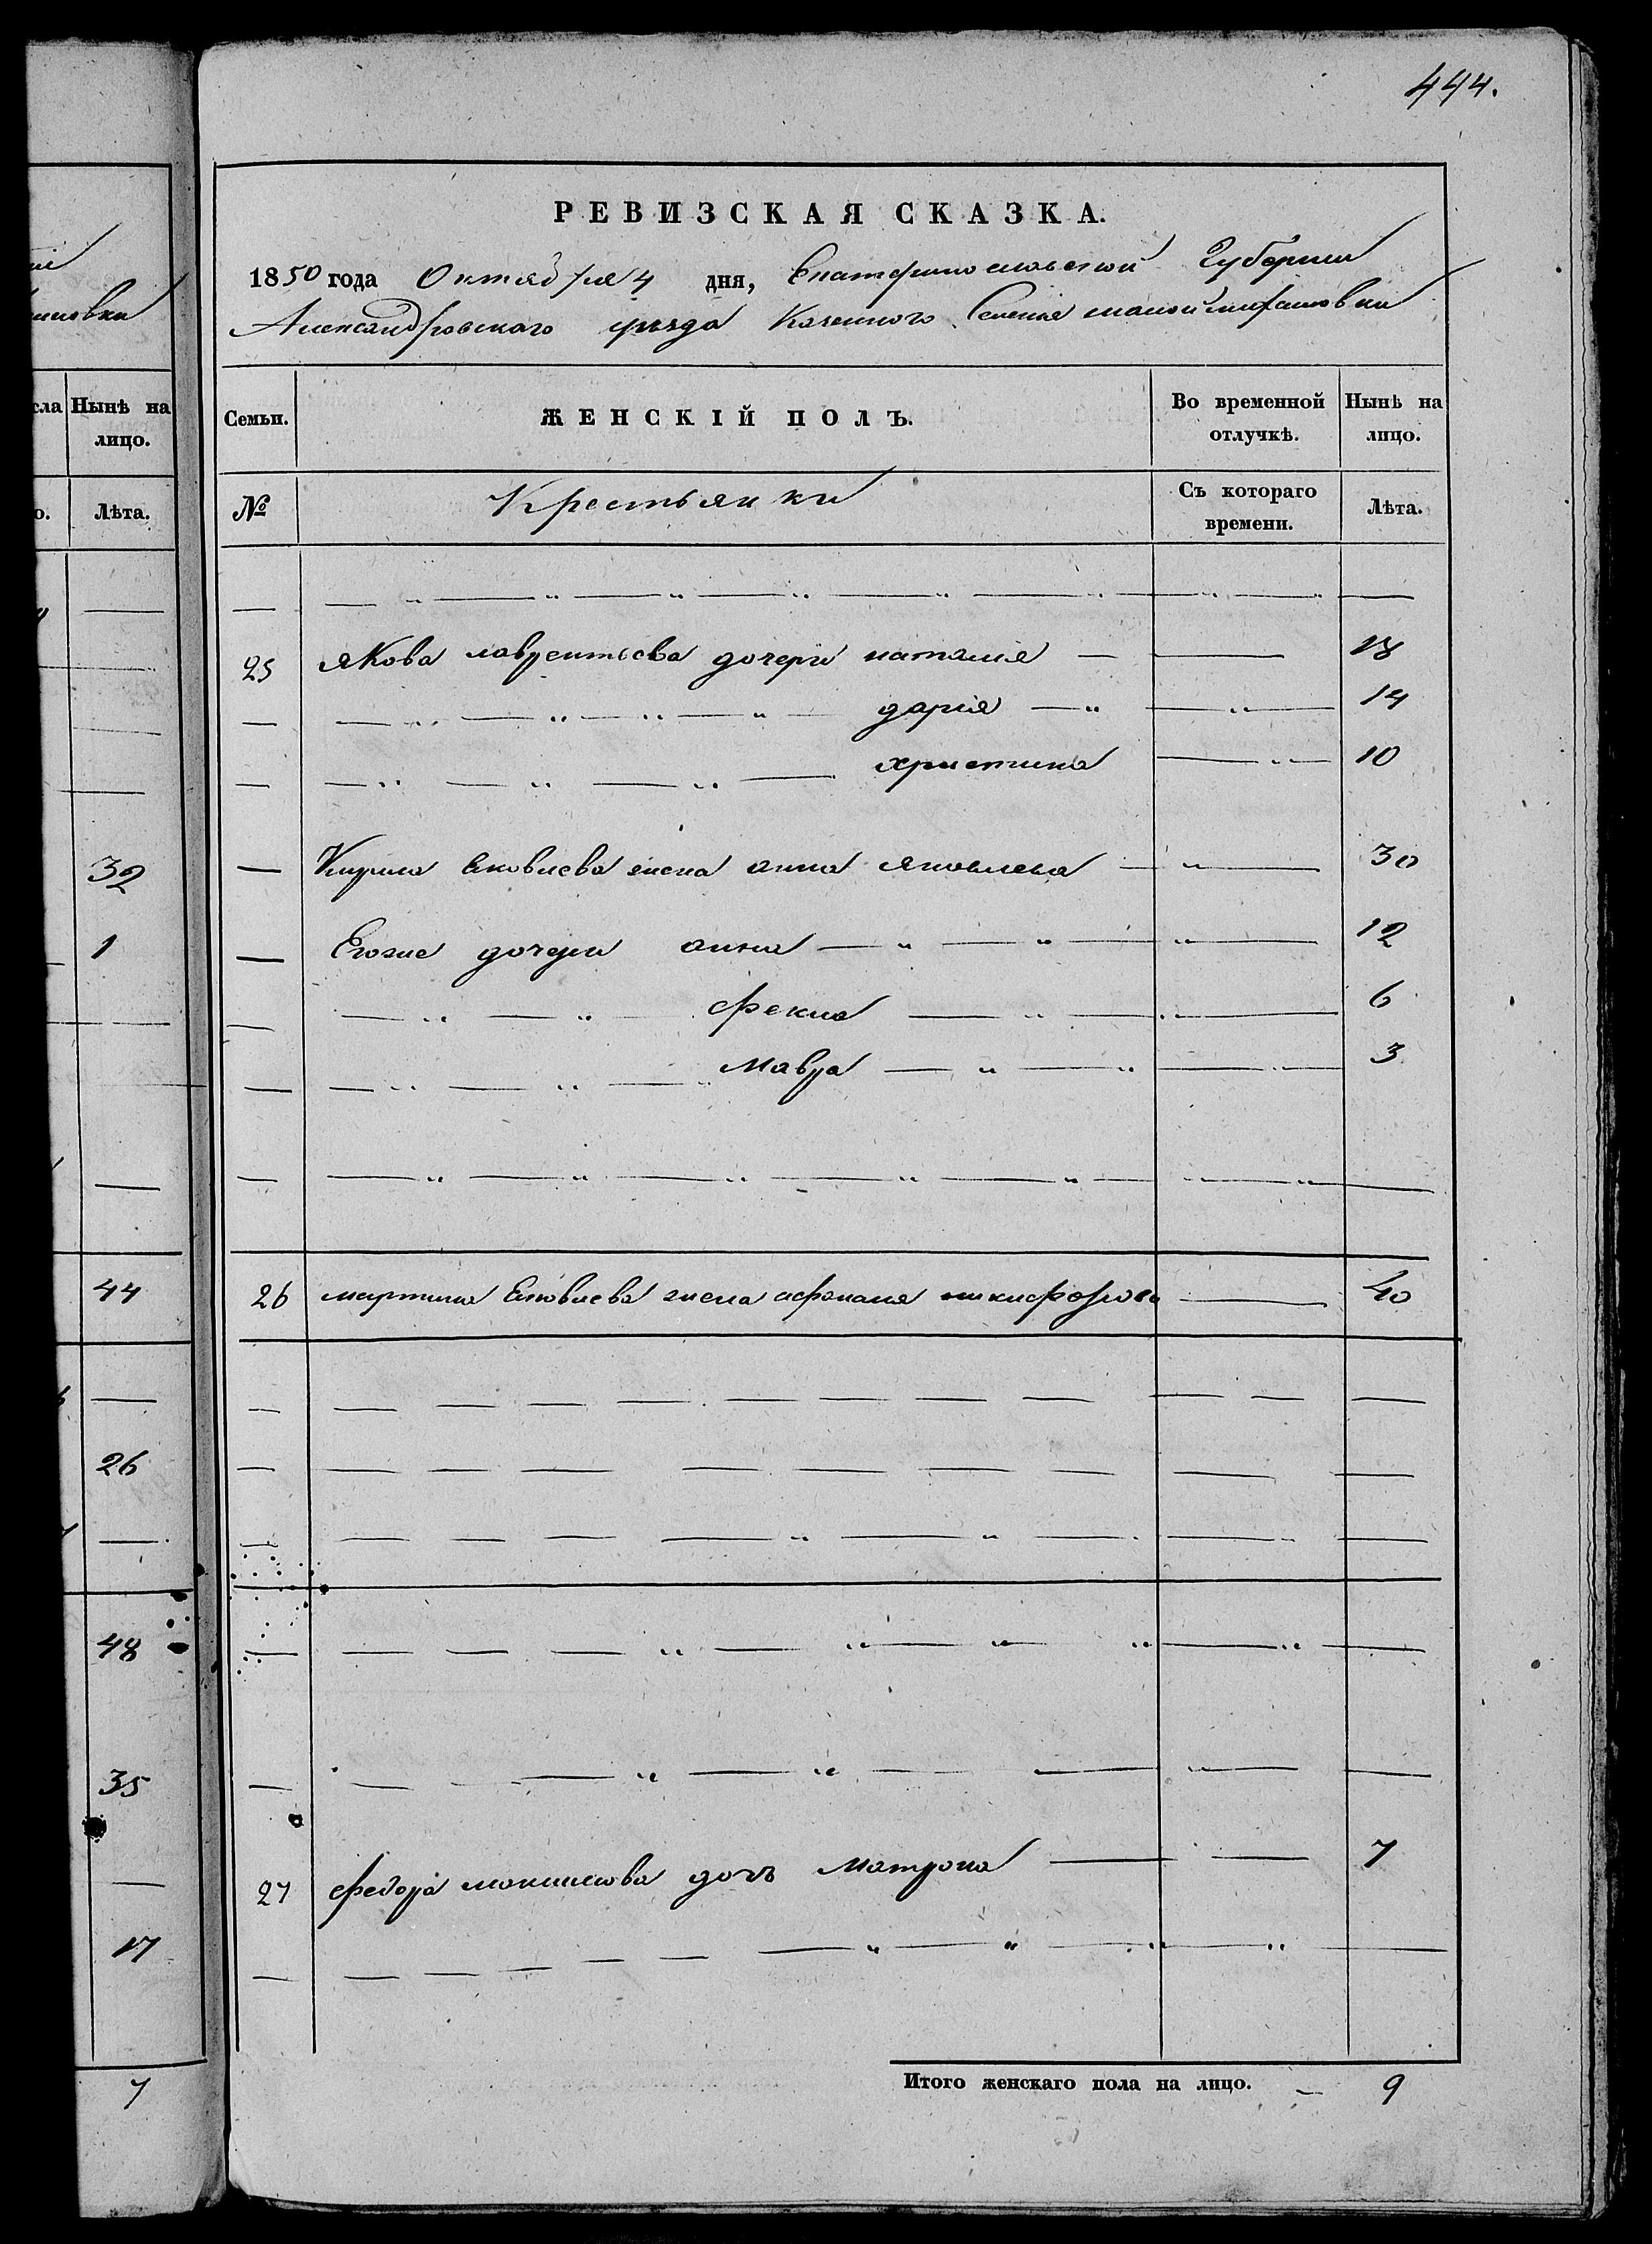 444.
РЕВИЗСКАЯ СКАЗКА.
1850 года Октября 4 дня, Екатеринославской Губернии
Александровского уезда Казенного Селения малой михайловки
сла
Нынѣ на лицо.
Семьи.
ЖЕНСКІЙ ПОЛЪ.
Во временной отлучкѣ.
Нынѣ на лицо.
о.
Лѣта.
№
Крестьянки
Съ котораго времени.
Лѣта.
25 якова лаврентьева дочери наталия — 18
дария — 14
христина 10
32
Кирила Яковлева жена анна яковлева — 30
1
Егоже дочери анна — 12
Фекла 6
Мавра 3
44
26 мартина Яковлева жена афанасия никифорова 40
26
48
35
27 Федора дочь Матрона 7
17
7
Итого женскаго пола на лицо. — 9